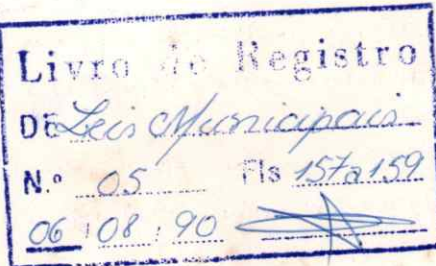 Livro de Registro
DE Leis Municipais
N.º 05 Fls 157a159
06 / 08 / 90